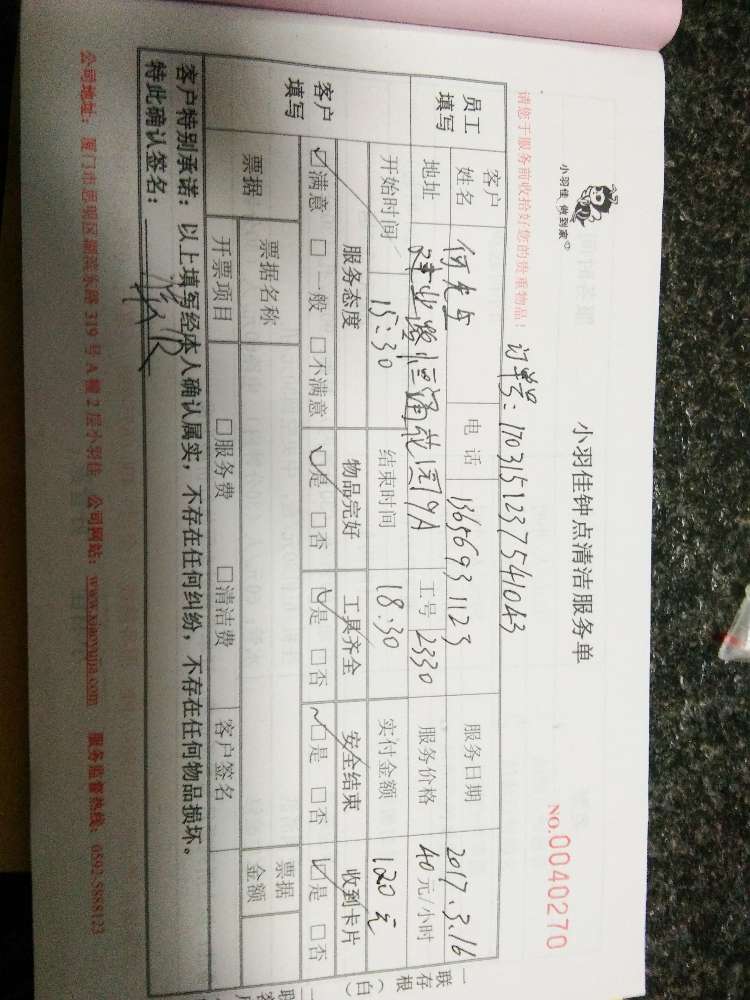 小羽佳 做到家
小羽佳钟点清洁服务单
请您于服务前收拾好您的贵重物品！
订单号：1703151237541043
NO.0040270
员工填写
客户姓名 何先生 电话 13656931123 服务日期 2017.3.16
地址 恒通花园9A 工号 2330 服务价格 40元/小时
开始时间 15:30 结束时间 18:30 实付金额 120元
客户填写
服务态度 物品完好 工具齐全 安全结束 收到卡片
☑满意 □一般 □不满意 ☑是 □否 ☑是 □否 ☑是 □否 ☑是 □否
票据 票据名称 票据金额
开票项目 □服务费 □清洁费 客户签名
客户特别承诺：以上填写经本人确认属实，不存在任何纠纷，不存在任何物品损坏。
特此确认签名：
公司地址：厦门市思明区湖滨东路319号A幢2层小羽佳 公司网站：www.xiaoyujia.com 服务监督热线：0592-5888123
一联存根（白）